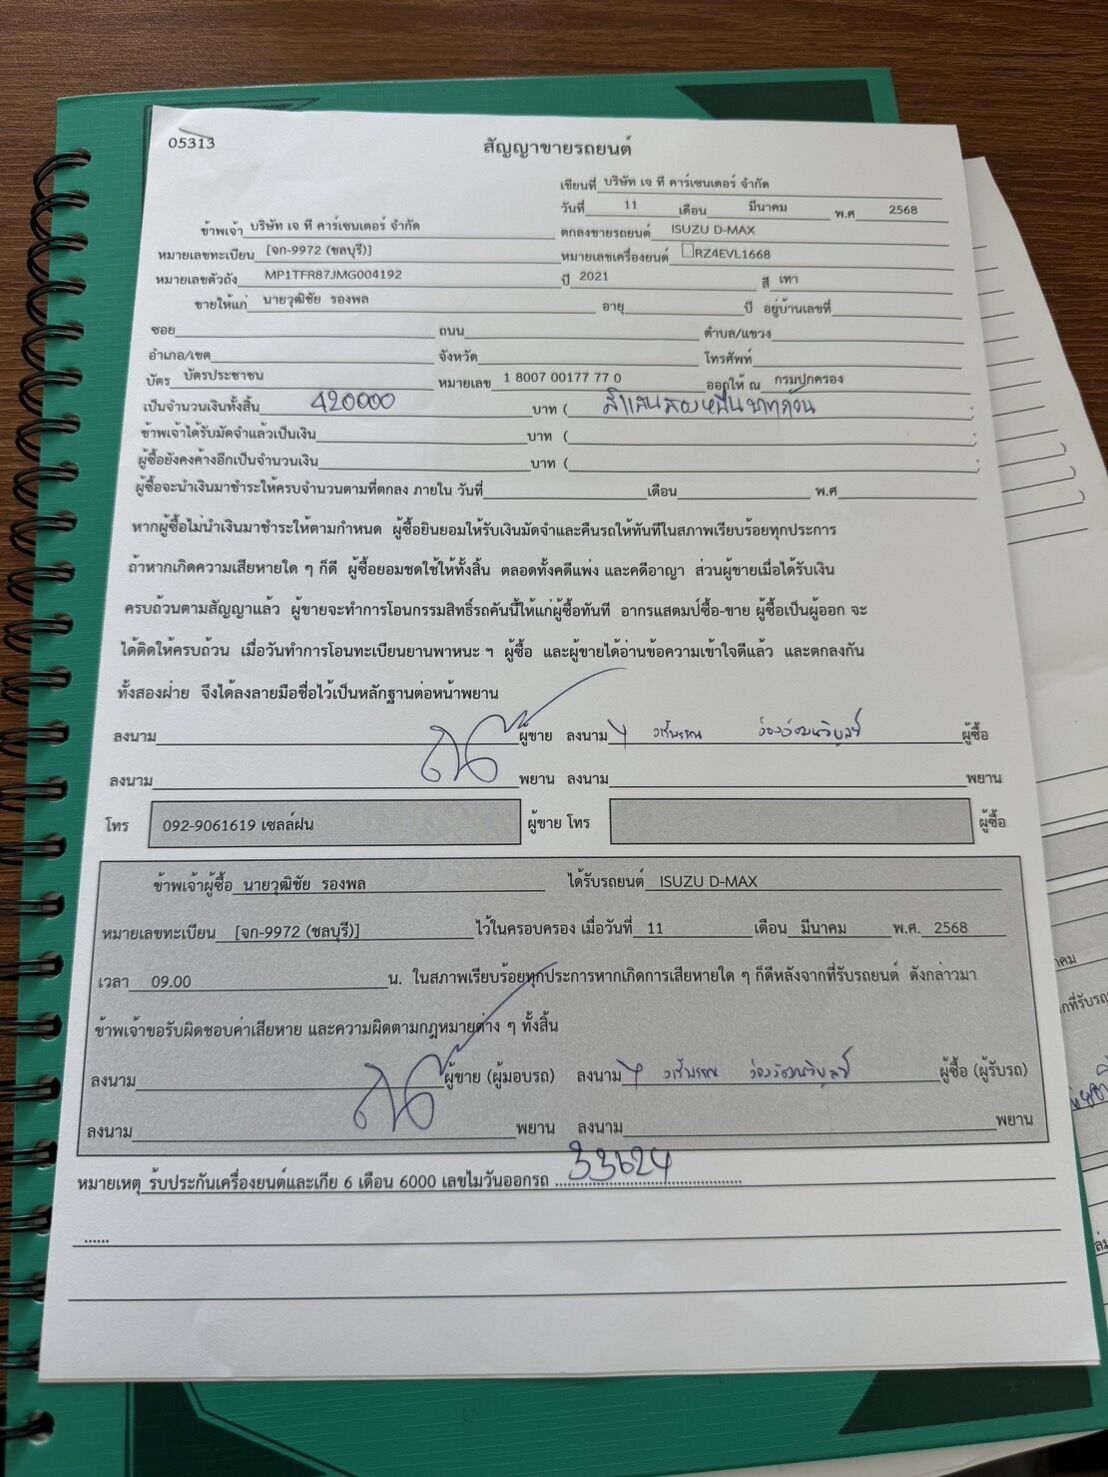 05313
สัญญาขายรถยนต์
เขียนที่ บริษัท เจ ที คาร์เซนเตอร์ จำกัด
วันที่ 11 เดือน มีนาคม พ.ศ 2568
ข้าพเจ้า บริษัท เจ ที คาร์เซนเตอร์ จำกัด ตกลงขายรถยนต์ ISUZU D-MAX
หมายเลขทะเบียน [จก-9972 (ชลบุรี)] หมายเลขเครื่องยนต์ RZ4EVL1668
หมายเลขตัวถัง MP1TFR87JMG004192 ปี 2021 สี เทา
ขายให้แก่ นายวุฒิชัย รองพล อายุ ปี อยู่บ้านเลขที่
ซอย ถนน ตำบล/แขวง
อำเภอ/เขต จังหวัด โทรศัพท์
บัตร บัตรประชาชน หมายเลข 1 8007 00177 77 0 ออกให้ ณ กรมปกครอง
เป็นจำนวนเงินทั้งสิ้น 420000 บาท ( สี่แสนสองหมื่นบาทถ้วน )
ข้าพเจ้าได้รับมัดจำแล้วเป็นเงิน บาท ( )
ผู้ซื้อยังคงค้างอีกเป็นจำนวนเงิน บาท ( )
ผู้ซื้อจะนำเงินมาชำระให้ครบจำนวนตามที่ตกลง ภายใน วันที่ เดือน พ.ศ
หากผู้ซื้อไม่นำเงินมาชำระให้ตามกำหนด ผู้ซื้อยินยอมให้รับเงินมัดจำและคืนรถให้ทันทีในสภาพเรียบร้อยทุกประการ
ถ้าหากเกิดความเสียหายใด ๆ ก็ดี ผู้ซื้อยอมชดใช้ให้ทั้งสิ้น ตลอดทั้งคดีแพ่ง และคดีอาญา ส่วนผู้ขายเมื่อได้รับเงิน
ครบถ้วนตามสัญญาแล้ว ผู้ขายจะทำการโอนกรรมสิทธิ์รถคันนี้ให้แก่ผู้ซื้อทันที อากรแสตมป์ซื้อ-ขาย ผู้ซื้อเป็นผู้ออก จะ
ได้ติดให้ครบถ้วน เมื่อวันทำการโอนทะเบียนยานพาหนะ ฯ ผู้ซื้อ และผู้ขายได้อ่านข้อความเข้าใจดีแล้ว และตกลงกัน
ทั้งสองฝ่าย จึงได้ลงลายมือชื่อไว้เป็นหลักฐานต่อหน้าพยาน
ลงนาม ผู้ขาย ลงนาม ผู้ซื้อ
ลงนาม พยาน ลงนาม พยาน
โทร 092-9061619 เซลล์ฝน ผู้ขาย โทร ผู้ซื้อ
ข้าพเจ้าผู้ซื้อ นายวุฒิชัย รองพล ได้รับรถยนต์ ISUZU D-MAX
หมายเลขทะเบียน [จก-9972 (ชลบุรี)] ไว้ในครอบครอง เมื่อวันที่ 11 เดือน มีนาคม พ.ศ. 2568
เวลา 09.00 น. ในสภาพเรียบร้อยทุกประการหากเกิดการเสียหายใด ๆ ก็ดีหลังจากที่รับรถยนต์ ดังกล่าวมา
ข้าพเจ้าขอรับผิดชอบค่าเสียหาย และความผิดตามกฎหมายต่าง ๆ ทั้งสิ้น
ลงนาม ผู้ขาย (ผู้มอบรถ) ลงนาม ผู้ซื้อ (ผู้รับรถ)
ลงนาม พยาน ลงนาม พยาน
หมายเหตุ รับประกันเครื่องยนต์และเกีย 6 เดือน 6000 เลขไมวันออกรถ 33624
......